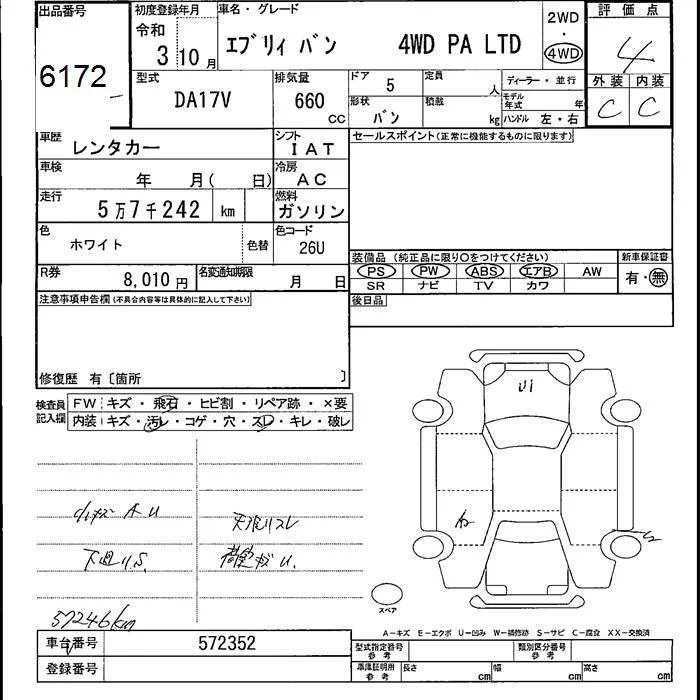 出品番号 初度登録年月 車名・グレード 2WD 評価点
6172 令和 3 10月 エブリィ バン 4WD PA LTD ・ 4WD 4
型式 排気量 ドア 5 定員 人 ディーラー・並行 外装 内装
DA17V 660 CC 形状 バン 積載 kg モデル年式 年 ハンドル 左・右 C C
車歴 レンタカー シフト IAT セールスポイント(正常に機能するものに限ります)
車検 年 月( 日) 冷房 AC
走行 5万7千242 km 燃料 ガソリン
色 ホワイト 色替 色コード 26U
装備品 (純正品に限り○をつけてください) 新車保証書
R券 8,010円 名変通知期限 月 日 PS PW ABS エアB AW 有・無
SR ナビ TV カワ
注意事項申告欄(不具合内容等は具体的に記入して下さい) 後日品
修復歴 有〔箇所 〕
検査員記入欄 FW キズ・飛石・ヒビ割・リペア跡・×要
内装 キズ・汚レ・コゲ・穴・スレ・キレ・破レ
小キズ A U
下廻りS.
57246km
スペア
A-キズ E-エクボ U-凹み W-補修跡 S-サビ C-腐食 XX-交換済
車台番号 572352 型式指定番号 参考 類別区分番号 参考
登録番号 車庫証明用 参考 長さ cm 幅 cm 高さ cm